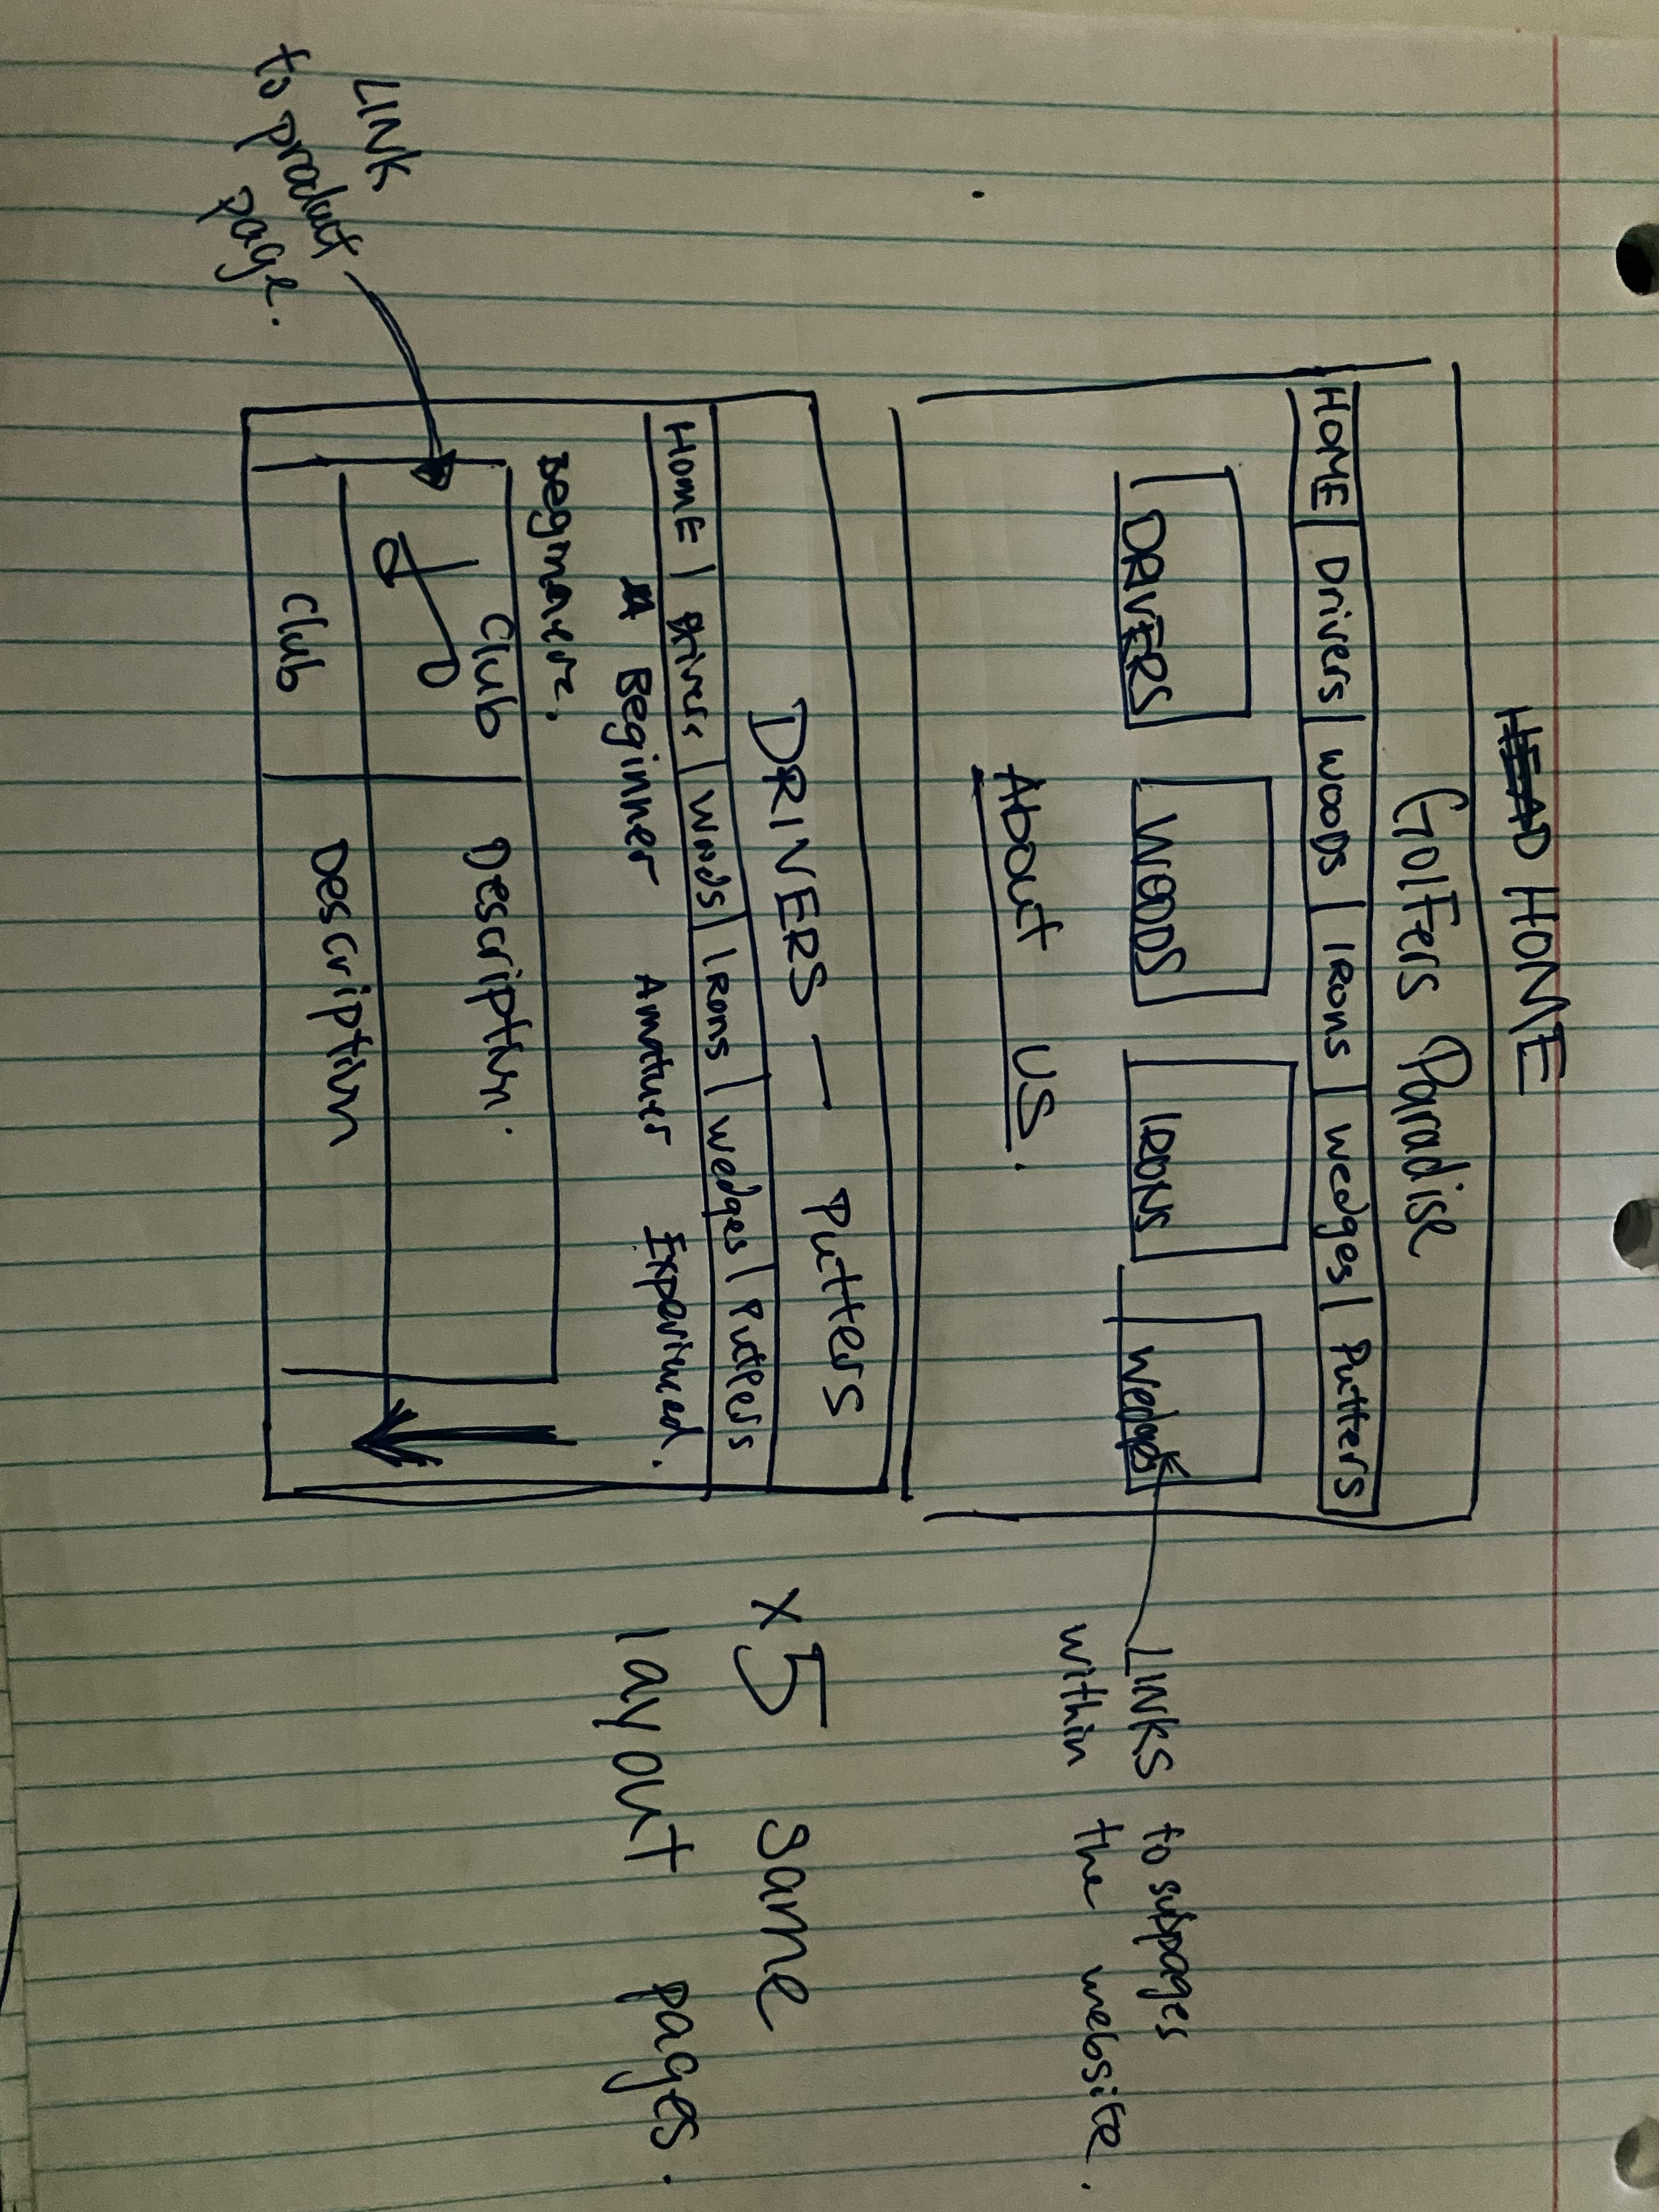 HEAD HOME
Golfers Paradise
HOME | Drivers | WOODS | IRons | wedges | Putters
DRIVERS
WOODS
IRONS
Wedges
LINKS to subpages
within the website.
About US.
DRIVERS — Putters
HomE | Drivers | Woods | IRons | wedges | Putters
Beginner Amatuer Experienced.
Beginners.
Club Description.
Club Description
x5 same
layout pages.
LINK
to product
page.